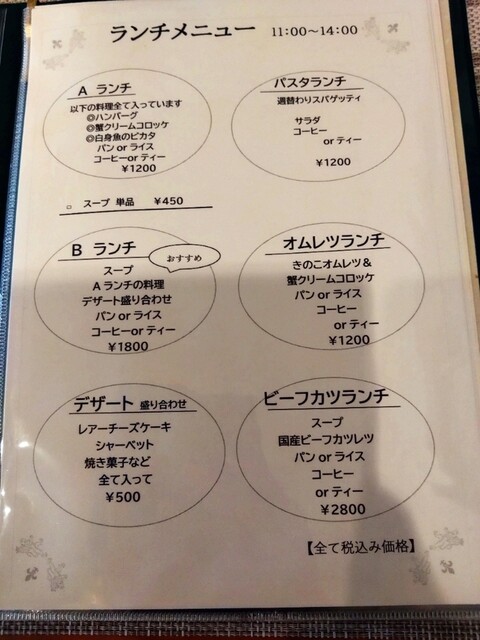 ランチメニュー 11:00～14:00
A ランチ
以下の料理全て入っています
◎ハンバーグ
◎蟹クリームコロッケ
◎白身魚のピカタ
パン or ライス
コーヒーor ティー
￥1200
パスタランチ
週替わりスパゲッティ
サラダ
コーヒー
or ティー
￥1200
□ スープ 単品 ￥450
B ランチ
おすすめ
スープ
A ランチの料理
デザート盛り合わせ
パン or ライス
コーヒーor ティー
￥1800
オムレツランチ
きのこオムレツ＆
蟹クリームコロッケ
パン or ライス
コーヒー
or ティー
￥1200
デザート 盛り合わせ
レアーチーズケーキ
シャーベット
焼き菓子など
全て入って
￥500
ビーフカツランチ
スープ
国産ビーフカツレツ
パン or ライス
コーヒー
or ティー
￥2800
【全て税込み価格】